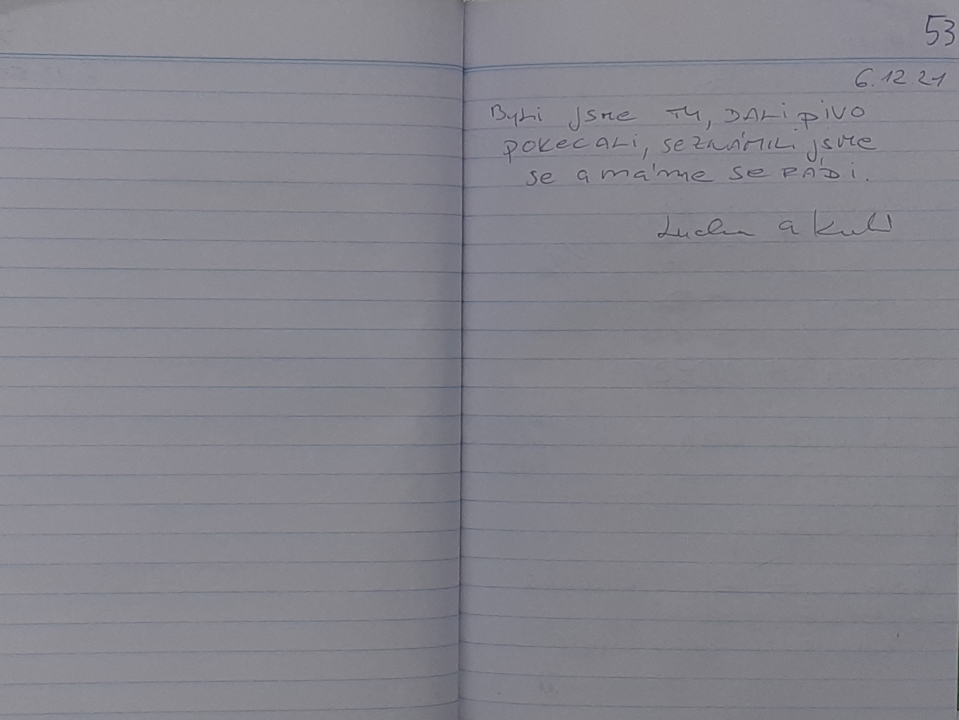 53
6.12.21
Byli jsme TU, DALi pivo
pokecali, seznámili jsme
se a máme se RÁDi.
a